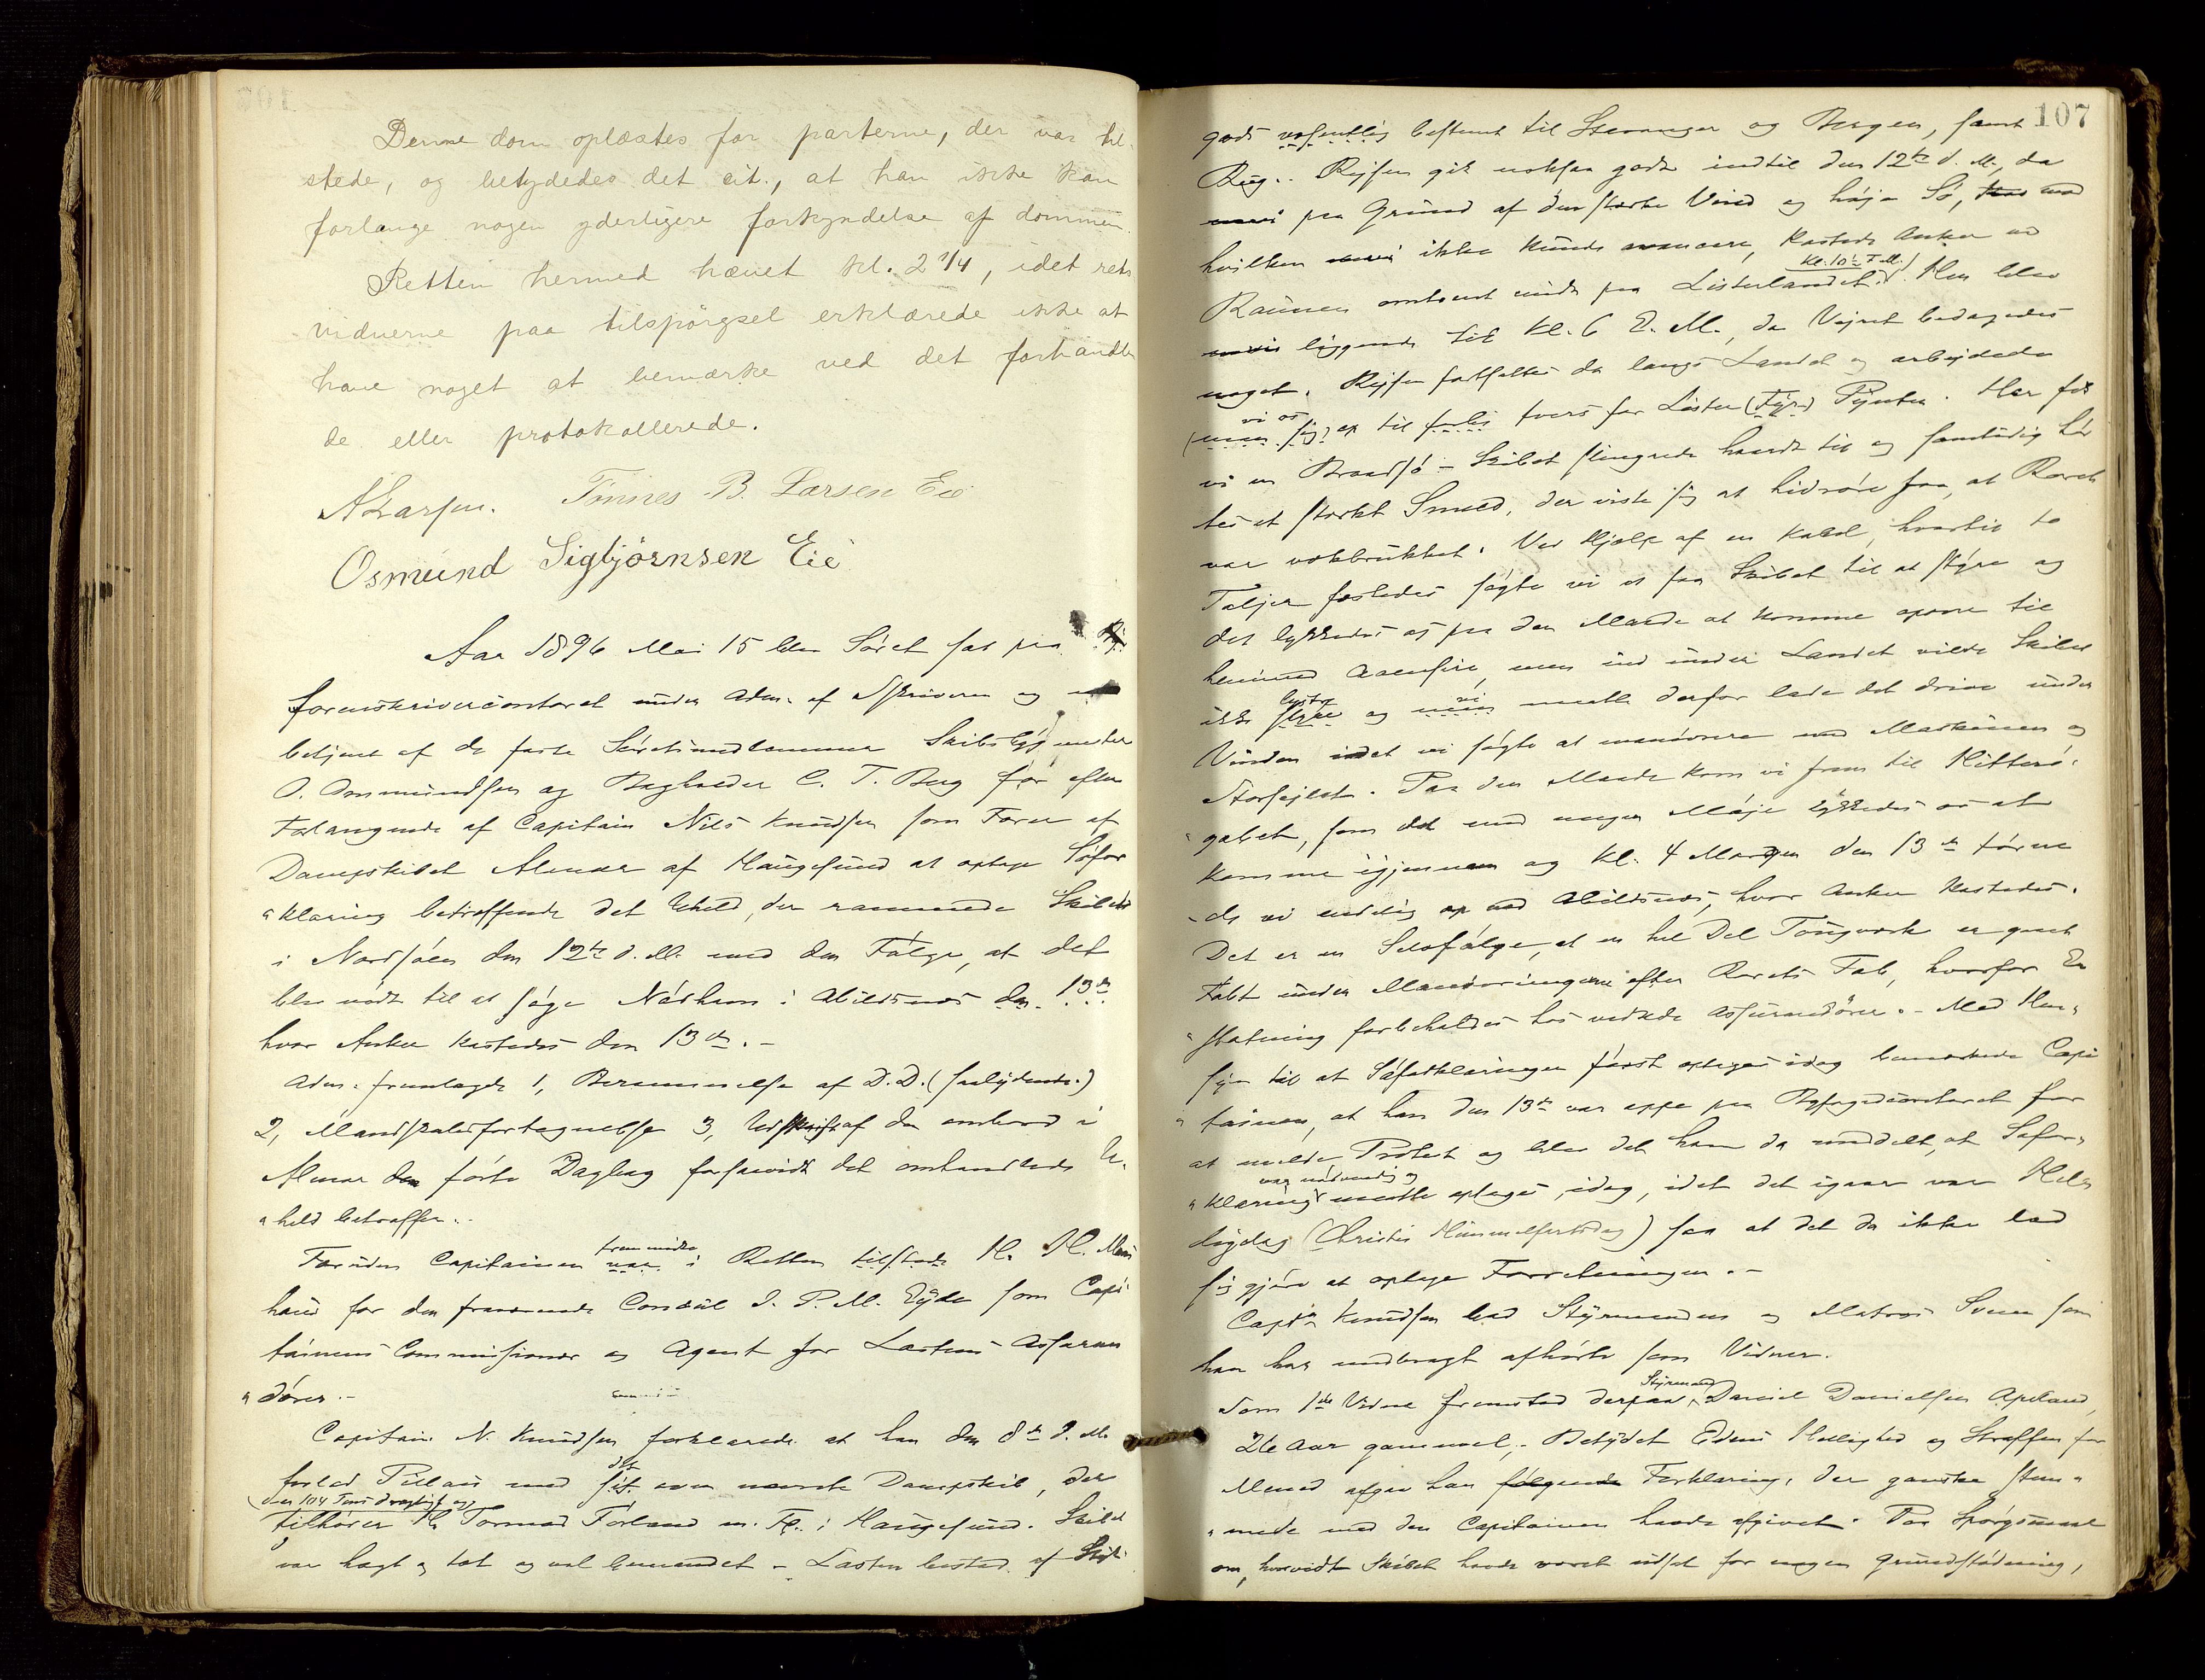 Denne dom oplæstes for parterne, der var til-
stede, og betydedes det cit., at han ikke kan
forlange nogen yderligere forkyndelse af dommen.
Retten hermed hævet kl. 2 1/4, idet rets
vidnerne paa tilspörgsel erklærede ikke at
have noget at bemærke ved det forhandle
de eller protokollerede.
A Larsen. Tönnes B. Larsen Eie
Osmund Sigbjörnsen Eie
Aar 1896 Mai 15 blev Söret sat paa
sorenskrivercontoret under Adm. af Skriveren og
betjent af de faste Söretsmedlemmer Skibsbygmester
O. Ommundsen og C. T. Berg for efter
Forlangende af Capitain Nils Knudsen som Förer af
Dampskibet Almar af Haugesund at optage Söfor
"klaring betræffende det Uheld, der rammede Skibet
i Nordsjöen den 12te d. M. med den Fölge, at det
blev nödt til at söge Nödhavn i Abildsnæs den 13de
hvor Anker kastedes den 13de.-
Adm. fremlagde 1, Berammelse af D.D. (saalydende:)
2, Mandskabsfortegnelse 3, Udskrift af den ombord i
Almar förte Dagbog forsaavidt det omhandlede U-
"held betræffer.
Foruden Capitainen var fremmödt i Retten tilstede H. H.
haus for den fraværende Consul I. P. M. Eyde som Capi-
tainens Commissionær og Agent for Lastens Assuran
"dörer.-
Capitain N. Knudsen forklarede at han den 8de d. M.
forlod Pillau med sit det oven nævnte Dampskib, der
(der 104 Tons drægtigt og)
tilhörer Hr Tormod Förland m. Fl. i Haugesund. Skibet
var lægt og tæt og vel bemandet - Lasten bestod af
107
gods væsentlig bestemt til Stavanger og Bergen, samt
Rug.. Rejsen gik noksaa godt indtil den 12te d. M., da
paa Grund af den stærke Vind og höje Sö, mod
hvilken ikke kunde avancere, kastede Anker ved
kl. 10 1/2 F. M.
Raunen omtrent midt paa Listerlandet. Her blev
liggende til Kl. 6 E. M., da Vejret bedagedes
noget. Rejsen fortsattes da langs Landet og arbejdede
vi os
(man sig) op til forbi tvers for Lister (Fyr) Pynten. Her fik
vi en Braadsö - Skibet slingrede haardt til og samtidig hör
tes et stærkt Smæld, der viste sig at hidröre fra, at Roret
var vækbrukket. Ved Hjælp af en Kabel, hvortil to
Taljer fæstedes sögte vi at faa Skibet til at styre og
det lykkedes os paa den Maade at komme opover til
henimod Aaensire, men ind under Landet vilde Skibet
lystre
ikke styre og vi maatte derfor lade det drive under
Vinden idet vi sögte at manövrere med Maskinen og
Storsejlet. Paa den Maade kom vi frem til Hitterö-
"gabet, som det med megen Möje lykkedes os at
komme igjennem og Kl. 4 Morgen den 13de törne
"de vi endelig op ved Abildsnæs, hvor Anker kastedes.
Det er en Selvfölge, at en hel Del Tougværk er gaaet
tabt under Manövreringerne efter Rorets Tab, hvorfor Er
"statning forbeholdes hos vedkde Assurandörer. - Med Hen-
syn til at Söforklaringen först optages idag bemærkede Capi
"tainen, at han den 13de var oppe paa Byfogedcontoret for
at melde Protest og blev det ham da meddelt, at Söfor-
var nödvendig og
"klaring maatte optages idag, idet det igaar var Hel-
ligdag (Christi Himmelfartsdag) saa at det da ikke lod
sig gjöre at optage Forretningen.-
Captn Knudsen bad Styrmanden og Matros Svend som
han har medbragt afhörte som Vidner.
Styrmand
Som 1ste Vidne fremstod derpaa Daniel Danielsen Apeland,
26 Aar gammel,- Betydet Edens Hellighed og Straffen for
Mened afgav han fölgende Forklaring, der ganske stem-
"mede med den Capitainen havde afgivet. Paa Spörgsmaal
om, hvorvidt Skibet havde været udsat for nogen Grundstödning,